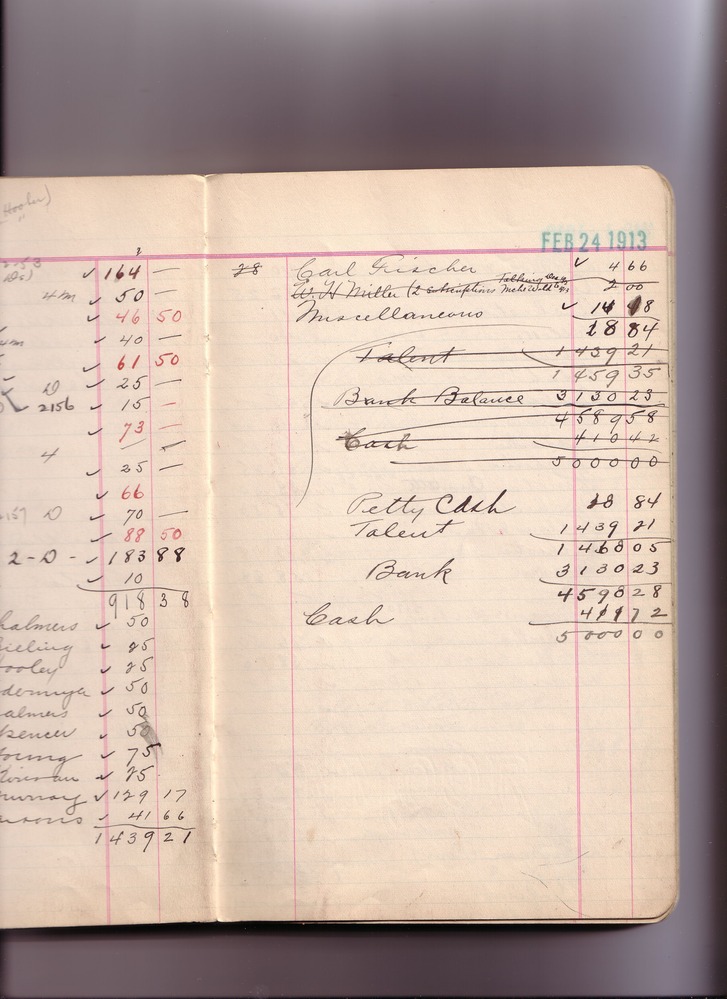 Hooker)
"
2153
✓ 164 —
4m ✓ 50 —
✓ 46 50
4m ✓ 40 —
✓ 61 50
D ✓ 25 —
2156 ✓ 15 —
✓ 73 —
4
✓ 25 —
✓ 66
2157 D ✓ 70 —
✓ 88 50
2-D - ✓ 183 88
✓ 10
918 38
halmers ✓ 50
ieling ✓ 25
ooley ✓ 25
dermyer ✓ 50
almers ✓ 50
pencer ✓ 50
oung ✓ 75
✓ 25
urray ✓ 129 17
✓ 41 66
1439 21
FEB 24 1913
28 Carl Fischer ✓ 4 66
W. H. Miller (2 Subscriptions 2 00
Miscellaneous ✓ 14 18
18 84
Talent 1 439 21
1 459 35
Bank Balance 3 130 23
4 589 58
Cash 410 42
5 000 00
Petty Cash 18 84
Talent 1 439 21
1 460 05
Bank 3 130 23
4 590 28
Cash 411 72
5 000 00